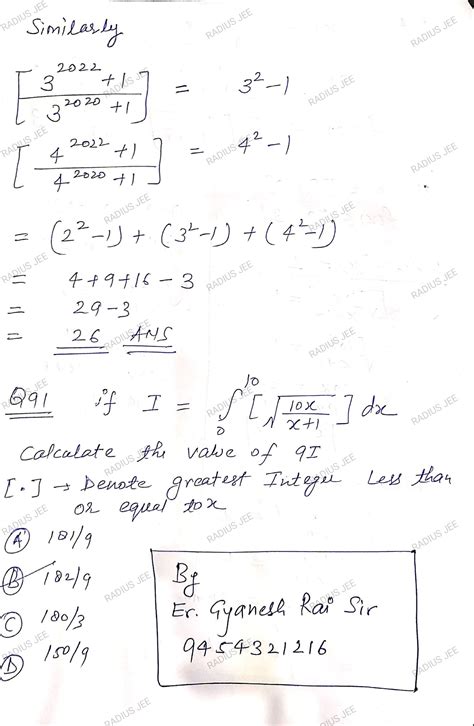 Similarly
[ (3^2022 + 1) / (3^2020 + 1) ] = 3^2 - 1
[ (4^2022 + 1) / (4^2020 + 1) ] = 4^2 - 1
= (2^2 - 1) + (3^2 - 1) + (4^2 - 1)
= 4 + 9 + 16 - 3
= 29 - 3
= 26 ANS
Q91 if I = ∫_0^10 [ √(10x / (x+1)) ] dx
Calculate the value of 9I
[.] → Denote greatest Integer Less than
or equal to x
(A) 181/9
(B) 182/9
(C) 180/3
(D) 150/9
By
Er. Gyanesh Rai Sir
9454321216
RADIUS JEE